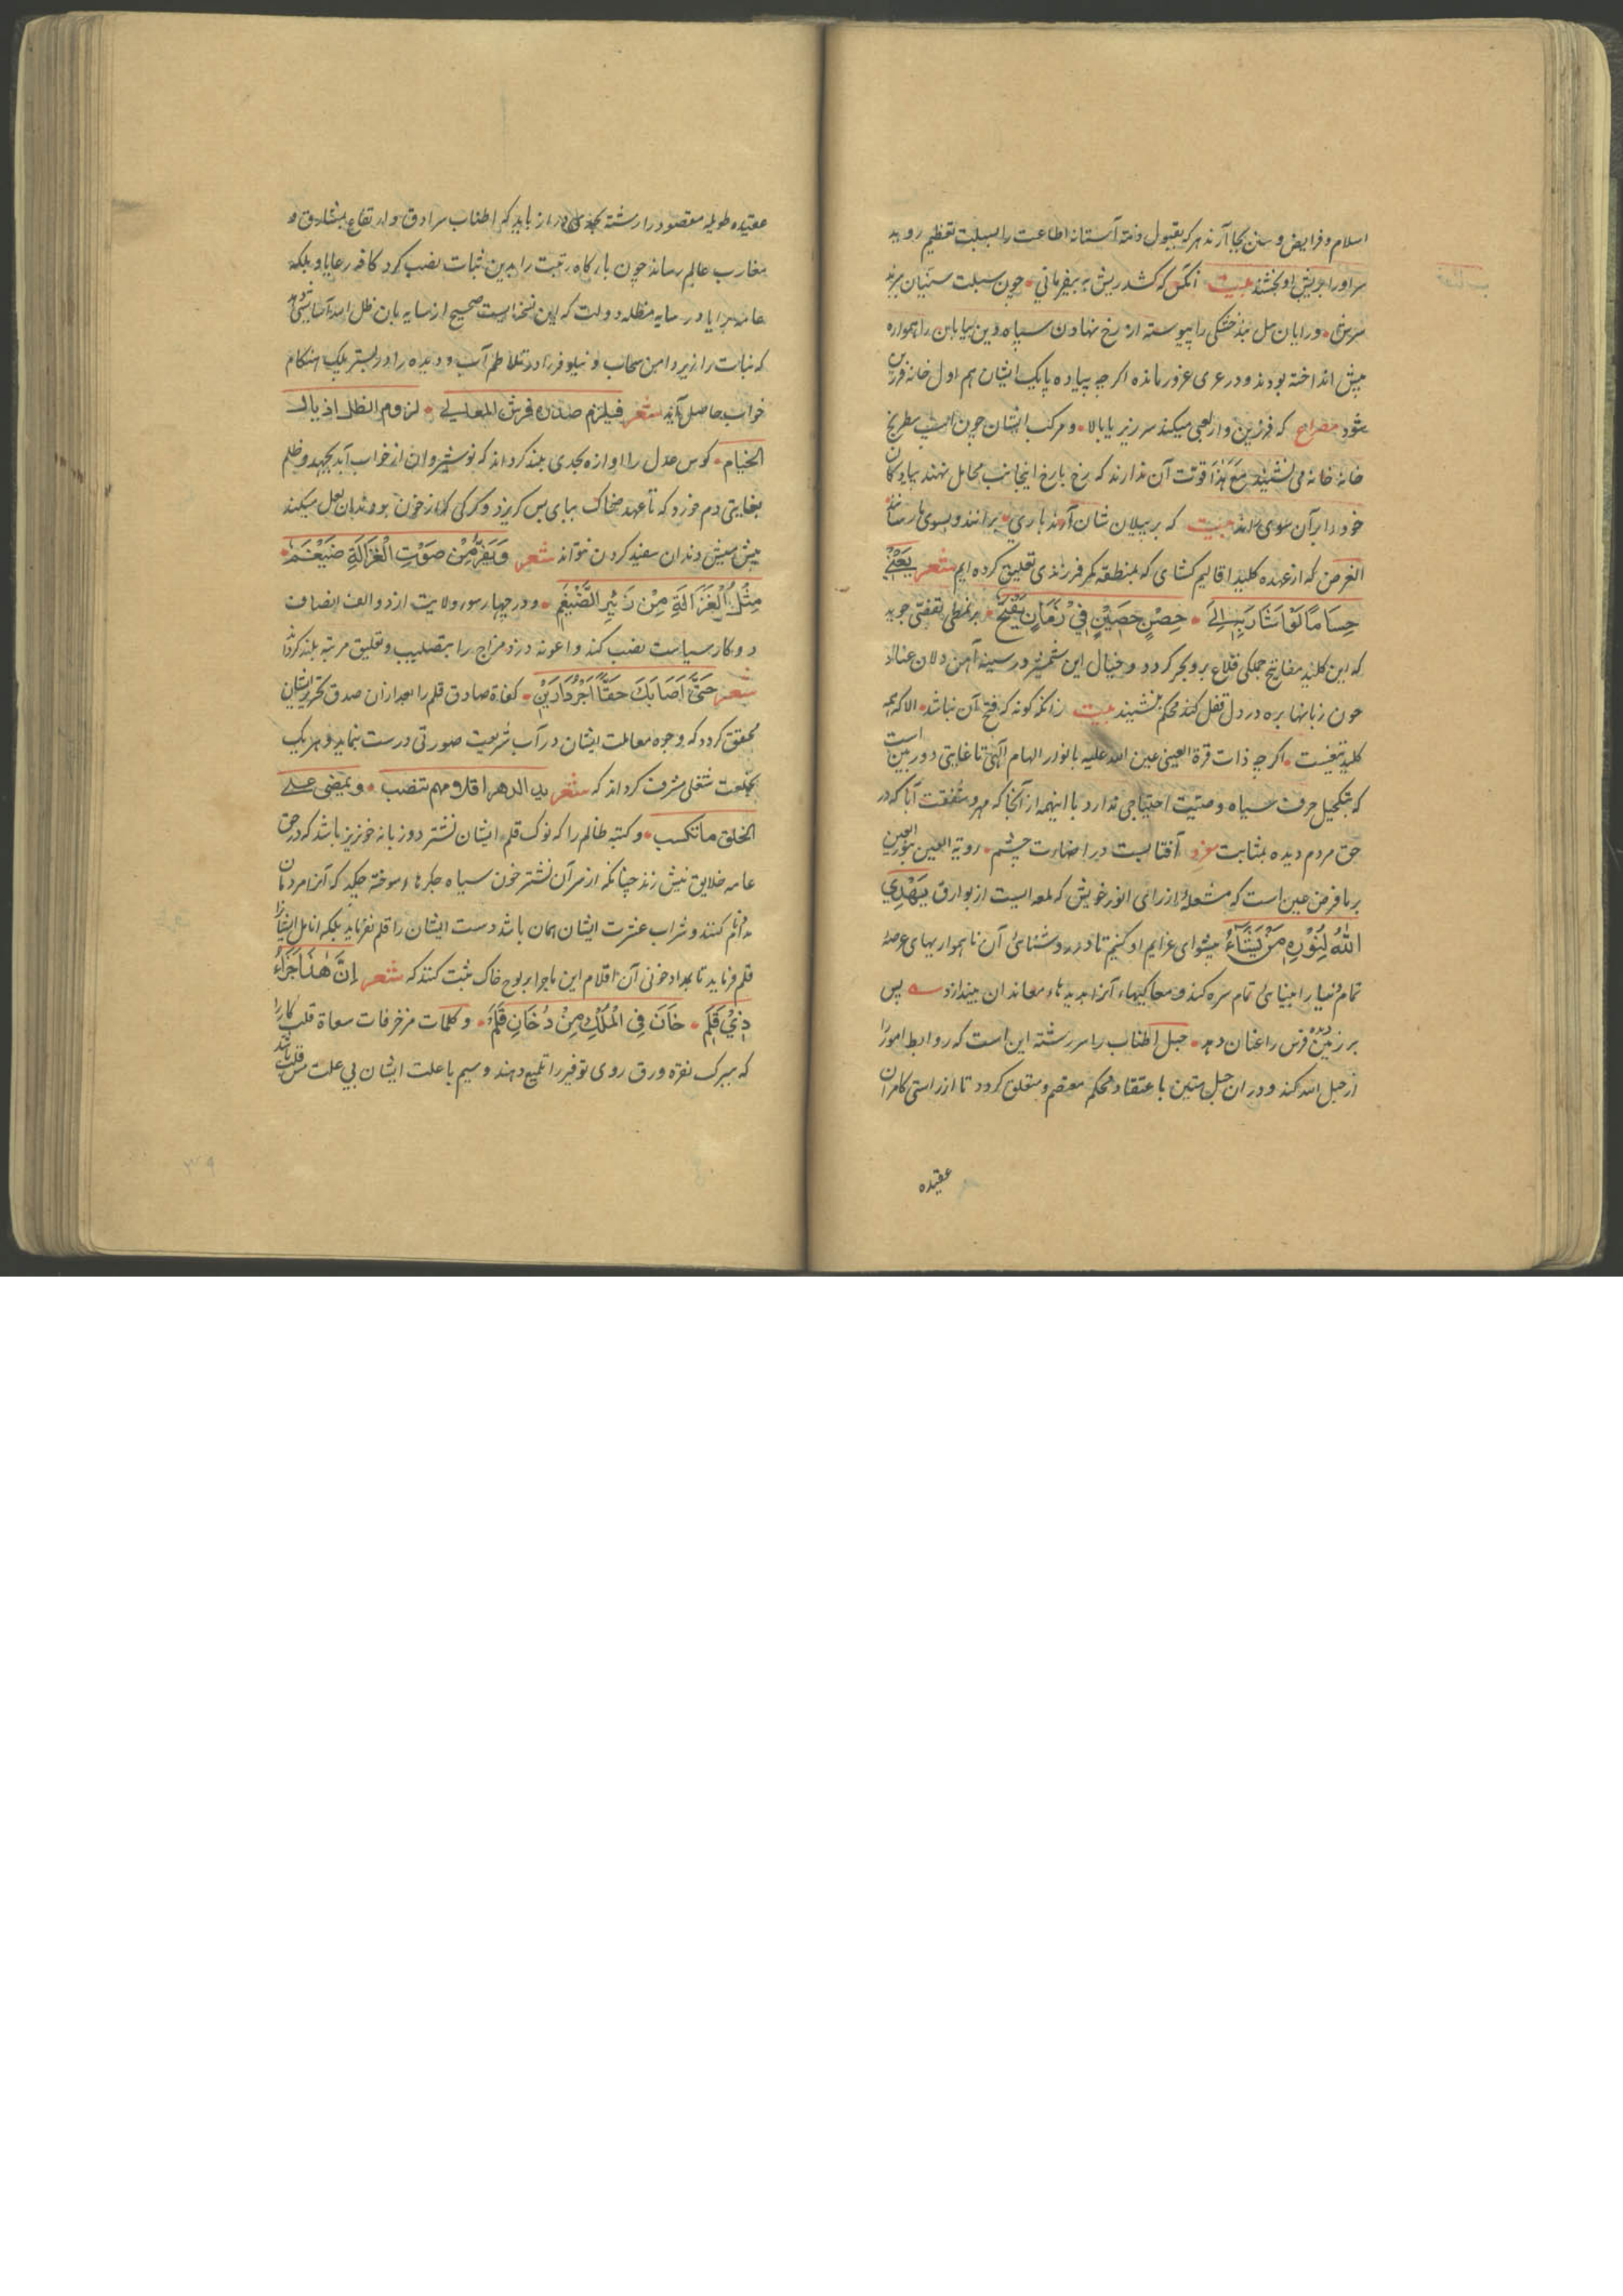 اسلام و فرایض و سنن بجا آرند هر که بقبول ذمّه آستانه اطاعت را بسبلت تعظیم روبد
سر او را بریش او بخشند بیت آنکس که کشد ریش به بیفرمانی چون سبلت سنیان برند
سرش و رایان خشکی را پیوسته از رخ نهادن سپاه دین بیابان را همواره
پیش انداخته بودند و در عری عزور مانده اگر چه پیاده پایک ایشان هم اول خانه فرزین
شود مصراع که فرزین وار لعبی میکند سر زیر پا بالا و مرکب ایشان چون اسب سطرنج
خانه خانه می نشیند مَعَ هٰذَا قوّت آن ندارند که رخ بارخ اینجانب مجامل نهند پیادکان
خود را بر آن سوی بیت که بر پیلان شان باری برانند و بسوی ما رسانند
الغرض که از عهده کلید اقالیم کشای که بمنطقه کمر فرزندی تعلیق کرده ایم شعر یَعْنِی
حِسَامًا لَوْ اَشَارَ بِهِ اِلَی حِصْنٍ حَصِیْنٍ فِیْ زَمَانٍ یُفْتَحُ بر نمطی تفصّی جوید
که این کلید مفاتیح جملکی قلاع بر و بحر کردد و خیال این شمشیر در سینه آهن دلان عناد
چون زبانها بره در دل قفل کند محکم بنشیند بیت زانکه کونه که فتح آن نباشد الا که همه
کلید تیغیست اکر چه ذات قرة العینی عین الله علیه بانوار الهام آلهی تا غایتی دوربین است
که بتکحیل حرف سیاه وصیّت احتیاجی ندارد با اینهمه از آنجا که مهر و شفقت آبا که در
حق مردم دیده بمثابت فرد آفتابست در اضاءت چشم رویة العین بنور العین
بر ما فرض عین است که مشعلهٔ از رای انور خویش که لمعه ایست از بوارق یَهْدِی
اللّٰهُ لِنُوْرِهٖ مَنْ یَّشَآءُ پیشوای عزایم او کنیم تا در روشنائی آن ناهمواریهای عرصهٔ
تمام دنیا را به بینائی تمام سره کند و مغاکیهاء آنرا بدیدهاء معاندان بیندازد پس
بر زمین فرس را عنان دهد حبل اطناب را سر رشته این است که روابط امور را
از حبل الله کند و در ان حبل متین باعتقاد محکم معتصم و متعلق کردد تا از راستی کامران
عقیده
عقیده طویله مقصود را رشته بحدی دراز یابد که اطناب سرادق و ارتفاع بمشارق و
مغارب عالم رساند چون بارکاه رتبت را بدین ثبات نصب کرد کافه رعایا و بلکه
عامه برایا در سایه مظله دولت که این نسخه است صحیح از سایه بان ظل الله آسایشی دهد
که نبات را زیر دامن سحاب و نیلوفر را در تلاطم آب و دیده را در بستر پلک هنکام
خواب حاصل آید شعر فیلزم صدره فرش المعالی لزوم الظل اذیال
الخیام کوس عدل را اوازه بحدی بلند کرداند که نوشیروان از خواب آبد بجهد و ظلم
بغایتی دم خورد که تا عهد ضحاک بپای پس کریزد و کرکی که از خون بو دندان لعل میکند
پیش میش دندان سفید کردن نتواند شعر وَیَفِرُّ مِنْ صَوْتِ الْغَزَالَةِ ضَیْغَمٌ
مِثْلُ الْغَزَالَةِ مِنْ زَئِیْرِ الضَّیْغَمِ و در چهار سوء ولایت از دو الف انصاف
دو کار سیاست نصب کند و اعونه دزد مزاج را بتصلیب و تعلیق مرتبه بلند کرداند
شعر حَتّٰی اَصَابَکَ حَقًّا اَجْرُ دَارَیْنِ کفاة صادق قلم را بعد از ان صدق تحریر ایشان
محقق کردد که وجوه معاملت ایشان در آب شریعت صورتی درست نماید و هر یک
بخلعت شغلی مشرف کرداند که شعر ید الدهر اقلامهم تنصب و یمضی علی
الخلق ما تکتب و کتبه ظالم را که نوک قلم ایشان نشتر دوزبانه خونریز باشد که در حق
عامه خلایق نیش زند چنانکه از سر آن نشتر خون سیاه جکرهاء سوخته چکد که آنرا مردمان
مدام کنند و شراب عشرت ایشان همان باشد دست ایشان را قلم نفرماید بلکه انامل ایشان را
قلم فرماید تا بمداد خونی آن اقلام این ماجرا بر لوح خاک ثبت کنند که شعر اِنَّ هٰذَا جَزَاءُ
ذِیْ قَلَمٍ خَانَ فِی الْمُلْکِ مِنْ دُخَانِ قَلَمٍ و کلمات مزخرفات سعاة قلب کار را
که ببرک نقره ورق روی توفیر را تلمیع دهند و سیم با علت ایشان بی علت مس قلب باشد